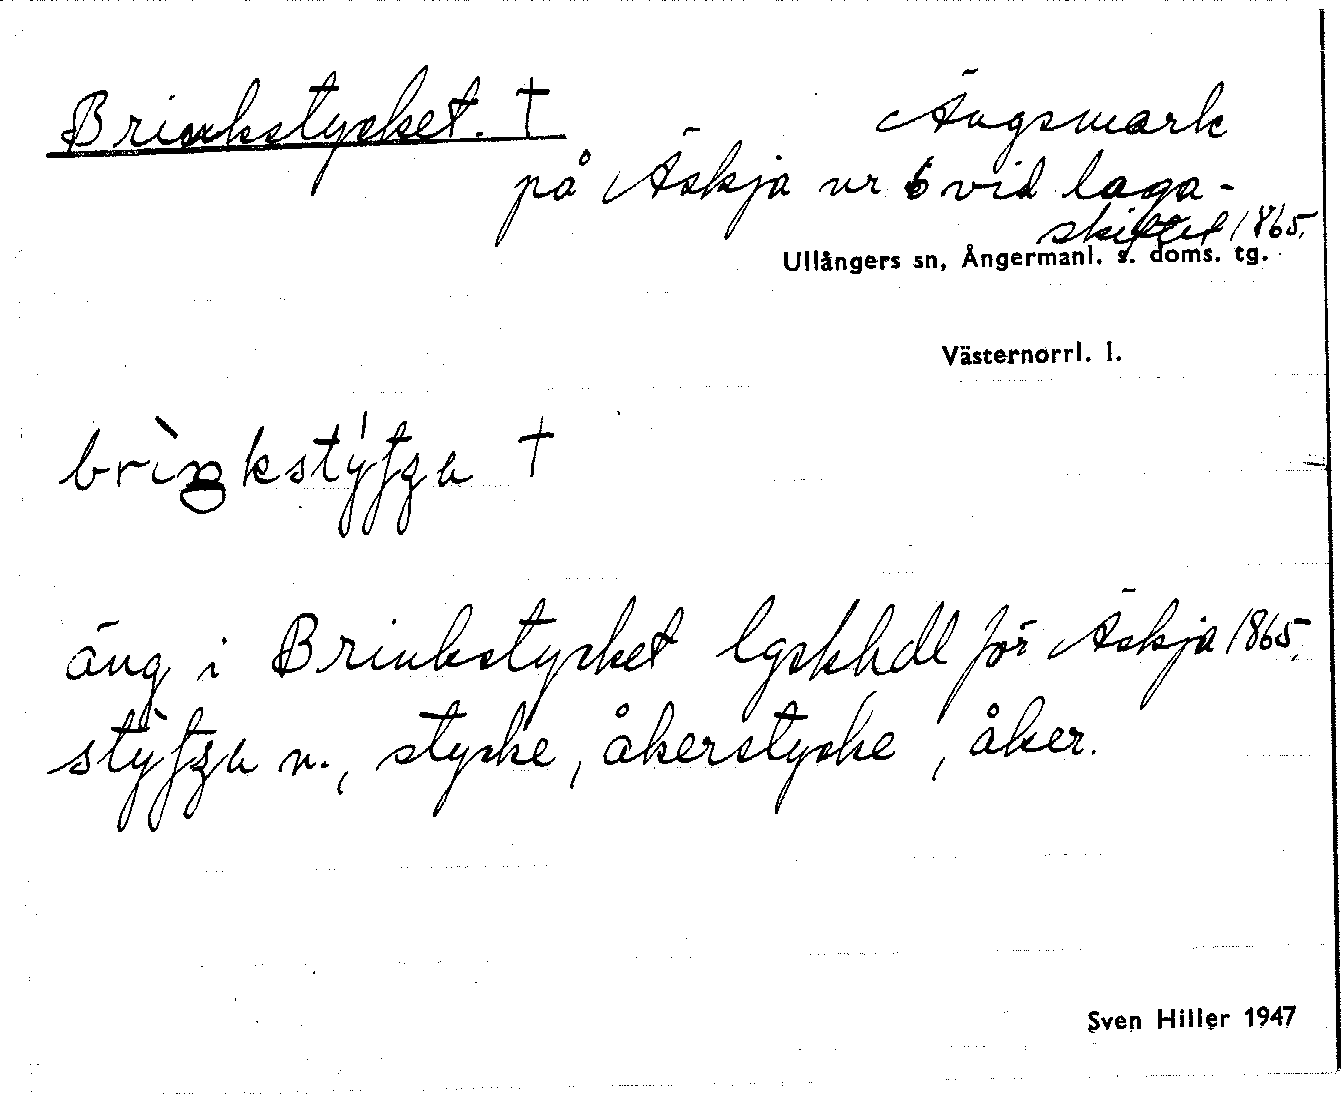 Brinkstycket. † Ängsmark
på Äskja nr 6 vid laga-
skiftet 1865.
Ullångers sn, Ångermanl. s. doms. tg.
Västernorrl. l.
†
äng i Brinkstycket lgskhdl för Äskja 1865.
n., stycke, åkerstycke, åker.
Sven Hiller 1947